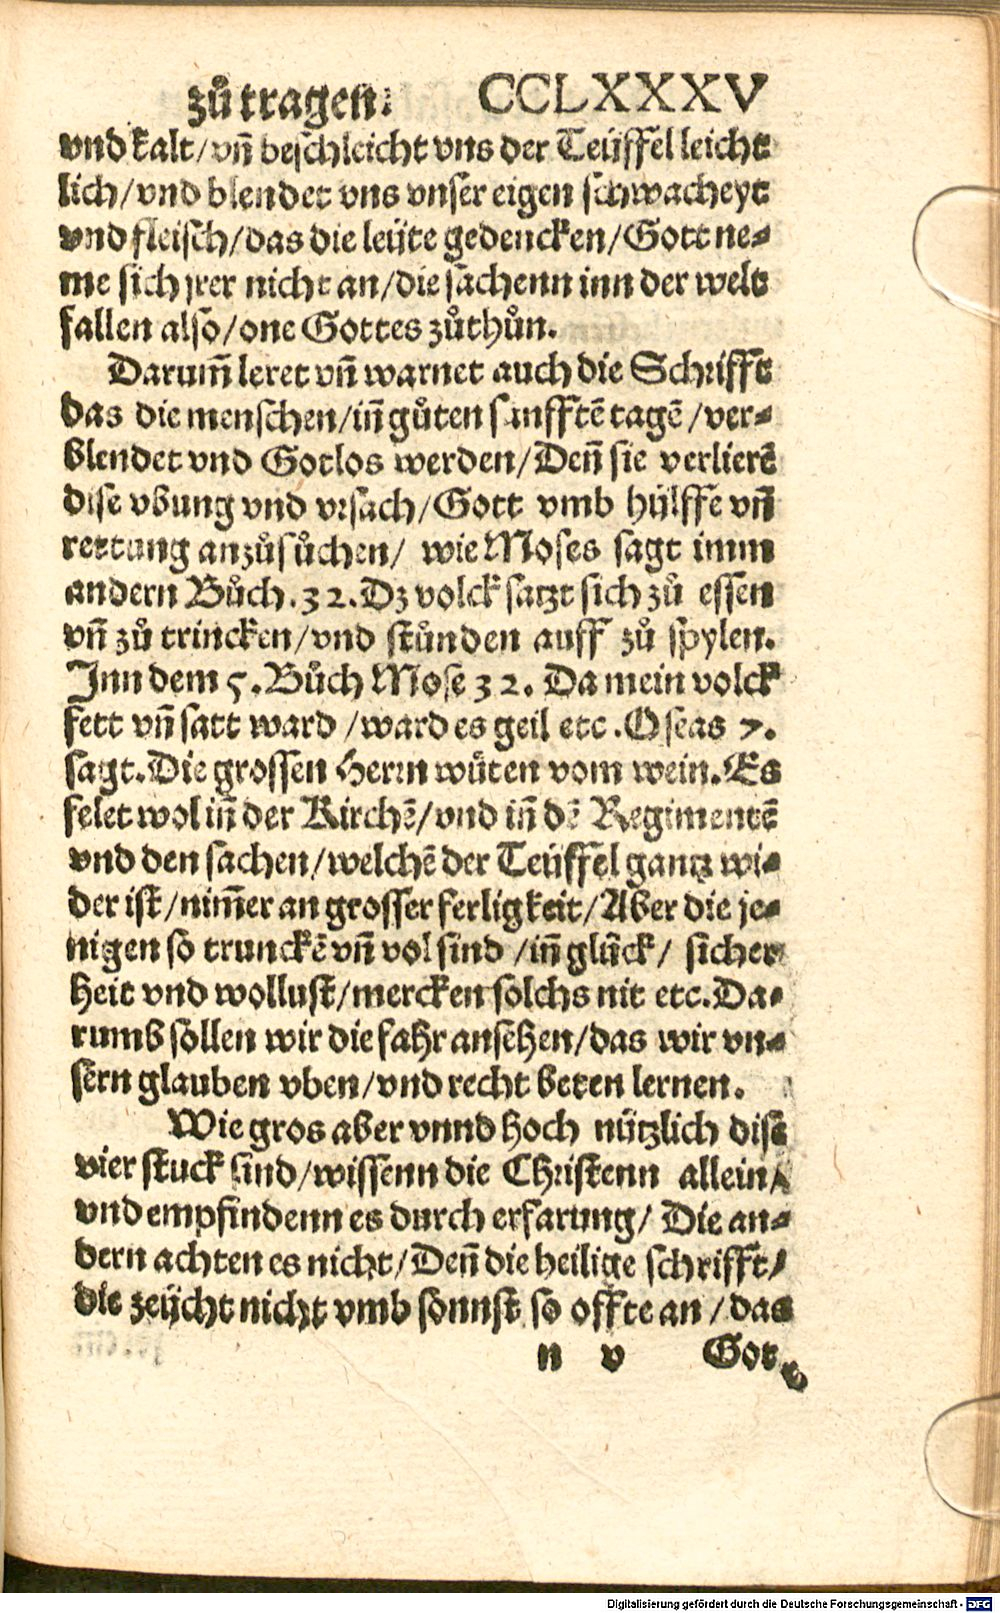 zů tragen. CCLXXXV
vnd kalt/vñ beschleicht vns der Teüffel leicht
lich/vnd blendet vns vnser eigen schwacheyt
vnd fleisch/das die leüte gedencken/Gott ne⸗
me sich jrer nicht an/die sachenn inn der welt
fallen also/one Gottes zůthůn.
Darum̃ leret vñ warnet auch die Schrifft
das die menschen/iñ gůten sanfftẽ tagẽ/ver⸗
blendet vnd Gotlos werden/Deñ sie verlierẽ
dise vbung vnd vrsach/Gott vmb hülffe vñ
rettung anzůsůchen/ wie Moses sagt imm
andern Bůch.32.Dz volck satzt sich zů essen
vñ zů trincken/vnd stůnden auff zů spylen.
Inn dem 5.Bůch Mose 32. Da mein volck
fett vñ satt ward/ward es geil etc.Oseas 7.
sagt.Die grossen Herrn wüten vom wein.Es
felet wol iñ der Kirchẽ/vnd iñ dẽ Regimentẽ
vnd den sachen/welchẽ der Teüffel gantz wi⸗
der ist/nim̃er an grosser ferligkeit/Aber die je⸗
nigen so trunckẽ vñ vol sind/iñ glück/ sicher
heit vnd wollust/mercken solchs nit etc.Da⸗
rumb sollen wir die fahr ansehen/das wir vn⸗
sern glauben vben/vnd recht beten lernen.
Wie gros aber vnnd hoch nützlich dise
vier stuck sind/wissenn die Christenn allein/
vnd empfindenn es durch erfarung/ Die an⸗
dern achten es nicht/Deñ die heilige schrifft/
die zeücht nicht vmb sonnst so offte an/das
n v Got⸗
Digitalisierung gefördert durch die Deutsche Forschungsgemeinschaft - DFG